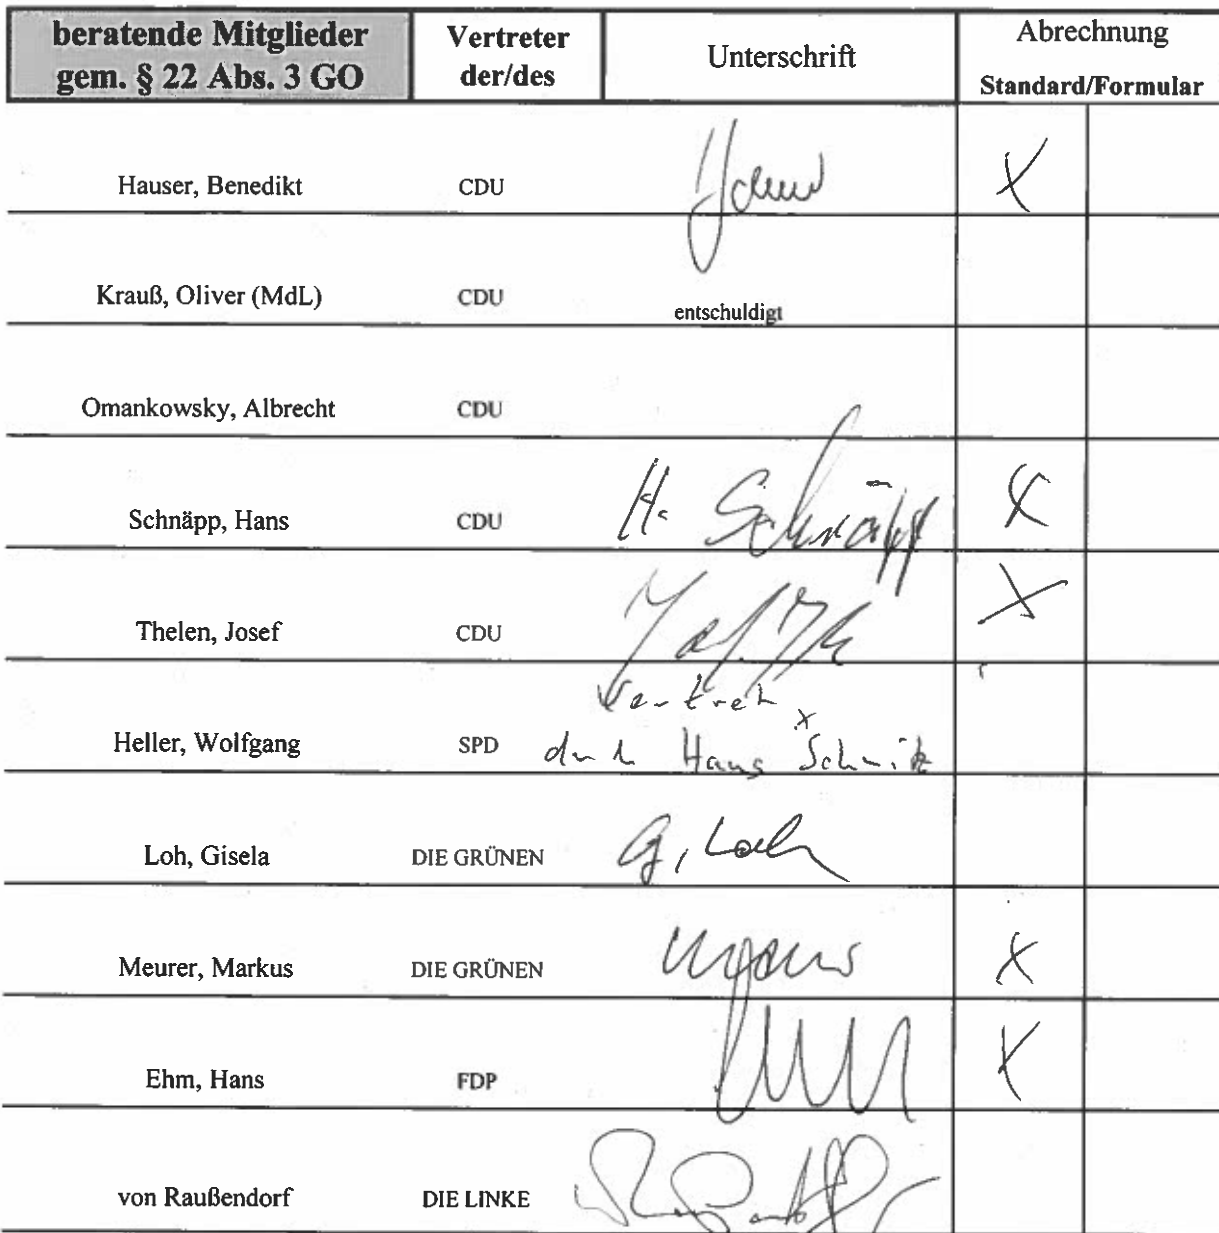 beratende Mitglieder gem. § 22 Abs. 3 GO
Vertreter der/des
Unterschrift
Abrechnung
Standard/Formular
Hauser, Benedikt CDU X
Krauß, Oliver (MdL) CDU entschuldigt
Omankowsky, Albrecht CDU
Schnäpp, Hans CDU H. Schnäpp X
Thelen, Josef CDU X
Vertret. x
Heller, Wolfgang SPD durch Hans Schmitz
Loh, Gisela DIE GRÜNEN G. Loh
Meurer, Markus DIE GRÜNEN X
Ehm, Hans FDP X
von Raußendorf DIE LINKE